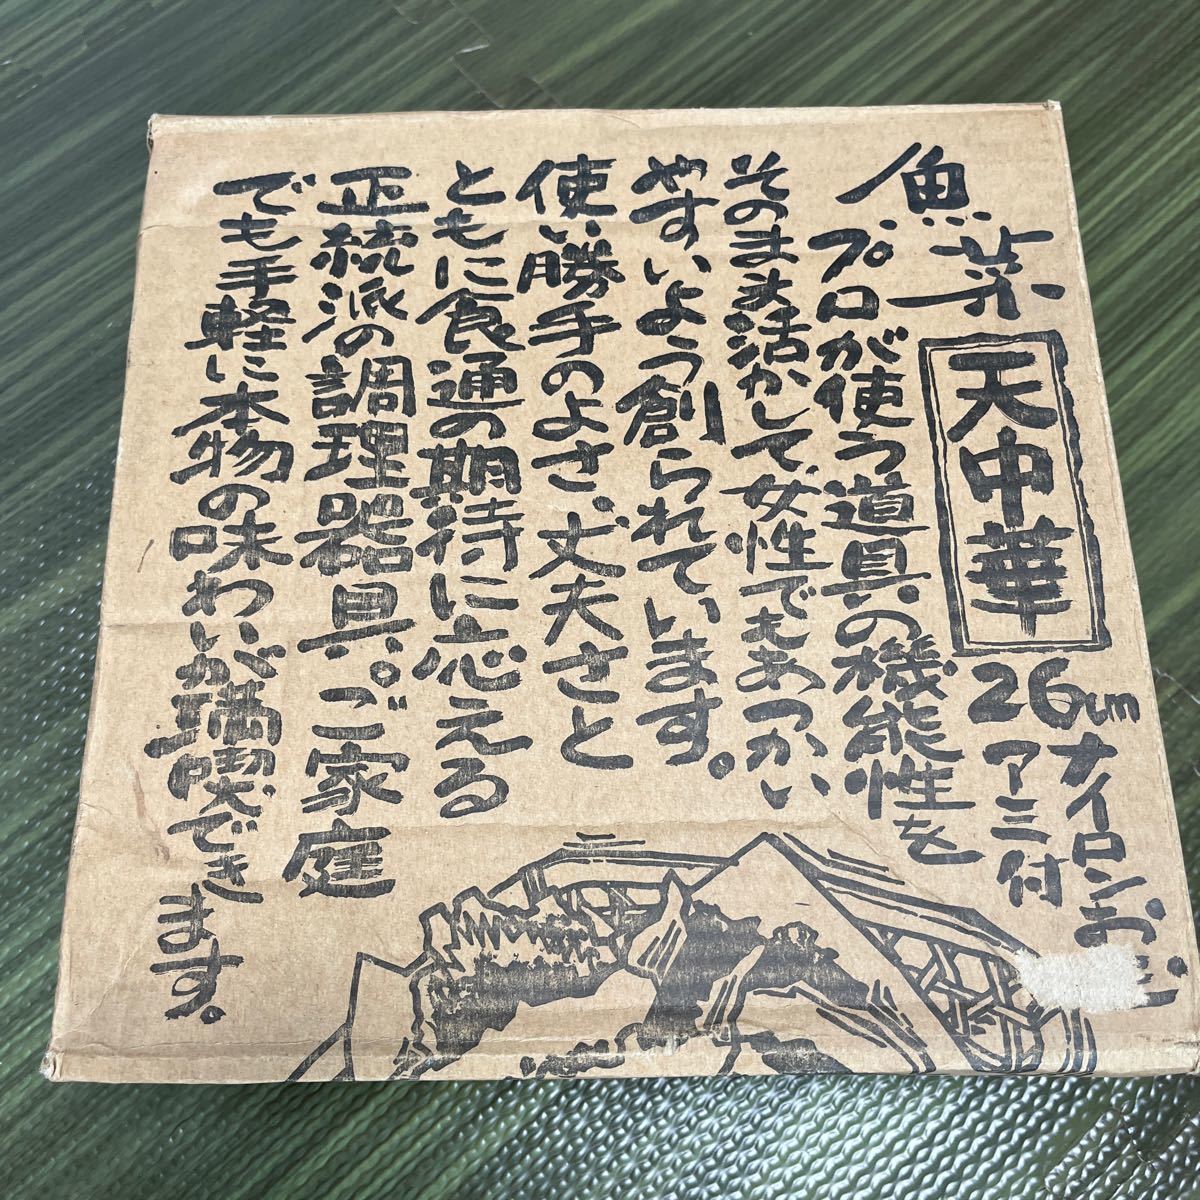 魚菜
天中華
26cm
ナイロンお
アミ付
プロが使う道具の機能性を
そのまま活かして、女性でもあつかい
やすいよう創られています。
使い勝手のよさ、丈夫さと
ともに食通の期待に応える
正統派の調理器具。ご家庭
でも手軽に本物の味わいが満喫できます。